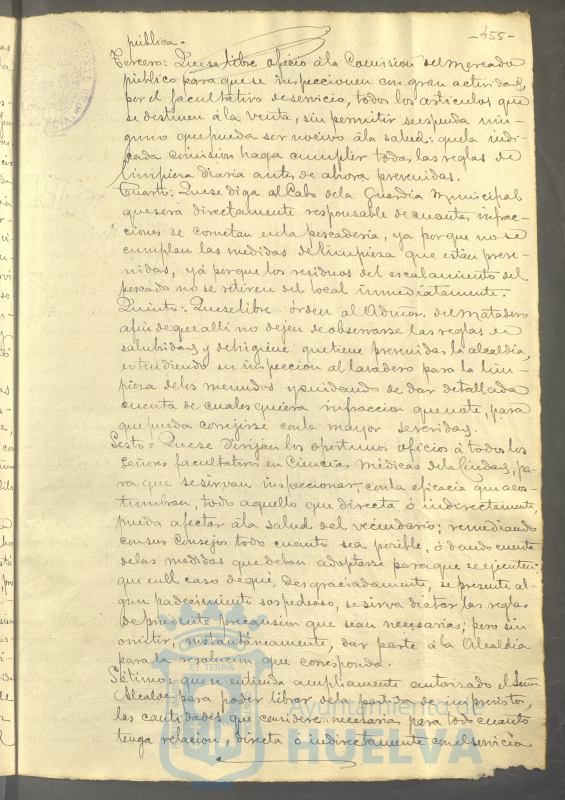 -455-
pública.
Tercero: Que se libre oficio á la Comision del Mercado
público para que se inspeccionen con gran actividad,
por el facultativo de servicio, todos los artículos que
se destinen á la venta, sin permitir se expenda nin-
guno que pueda ser nocivo á la salud: que la indi-
cada comisión haga cumplir todas las reglas de
limpieza diaria antes de ahora prevenidas.
Cuarto: Que se diga al Cabo de la Guardia Municipal
que será directamente responsable de cuantas infrac-
ciones se cometan en la pescadería, ya porque no se
cumplan las medidas de limpieza que están preve-
nidas, yá porque los residuos del escalamiento del
pescado no se retiren del local inmediatamente.
Quinto: Que se libre órden al Admor. del Matadero
afin de que alli no dejen de observarse las reglas de
salubridad y de higiene que tiene prevenidas la alcaldía,
extendiendo su inspeccion al lavadero para la lim-
pieza de los menudos y cuidando de dar detallada
cuenta de cualesquiera infraccion que note, para
que pueda correjirse con la mayor severidad.
Sesto = Que se dirijan los oportunos oficios á todos los
Señores facultativos en Ciencias Médicas de la Ciudad, pa-
ra que se sirvan inspeccionar, con la eficacia que acos-
tumbran, todo aquello que directa ó indirectamente,
pueda afectar á la salud del vecindario; remediando
con sus consejos todo cuanto sea posible, ó dando cuenta
de las medidas que deban adoptarse para que se ejecuten:
que en el caso de que, desgraciadamente, se presente al-
gun padecimiento sospechoso, se sirva dictar las reglas
de prudente precausion que sean necesarias; pero sin
omitir, instantáneamente, dar parte á la Alcaldia
para la resolucion que corresponda.
Sétimo: que se entienda ampliamente autorizado el Señor
Alcalde para poder librar de la partida de imprevistos,
las cantidades que considere necesarias para todo cuanto
tenga relacion, directa ó indirectamente con el servicio
Ayuntamiento de
HUELVA